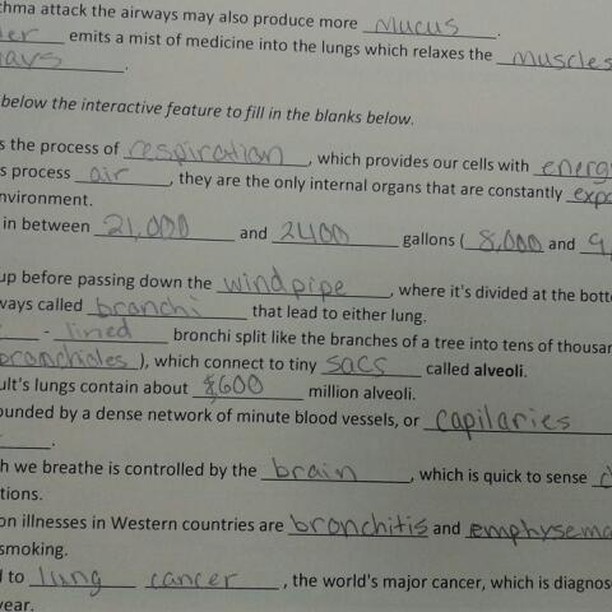 thma attack the airways may also produce more mucus.
er emits a mist of medicine into the lungs which relaxes the muscles
ays.
below the interactive feature to fill in the blanks below.
s the process of respiration, which provides our cells with energ
s process air, they are the only internal organs that are constantly expo
nvironment.
in between 21,000 and 2400 gallons (8,000 and 9,
up before passing down the windpipe, where it's divided at the botto
ways called branchi that lead to either lung.
- lined bronchi split like the branches of a tree into tens of thousan
branchioles), which connect to tiny sacs called alveoli.
ult's lungs contain about 600 million alveoli.
ounded by a dense network of minute blood vessels, or capilaries
.
h we breathe is controlled by the brain, which is quick to sense
tions.
on illnesses in Western countries are bronchitis and emphysema
smoking.
to lung cancer, the world's major cancer, which is diagnos
year.